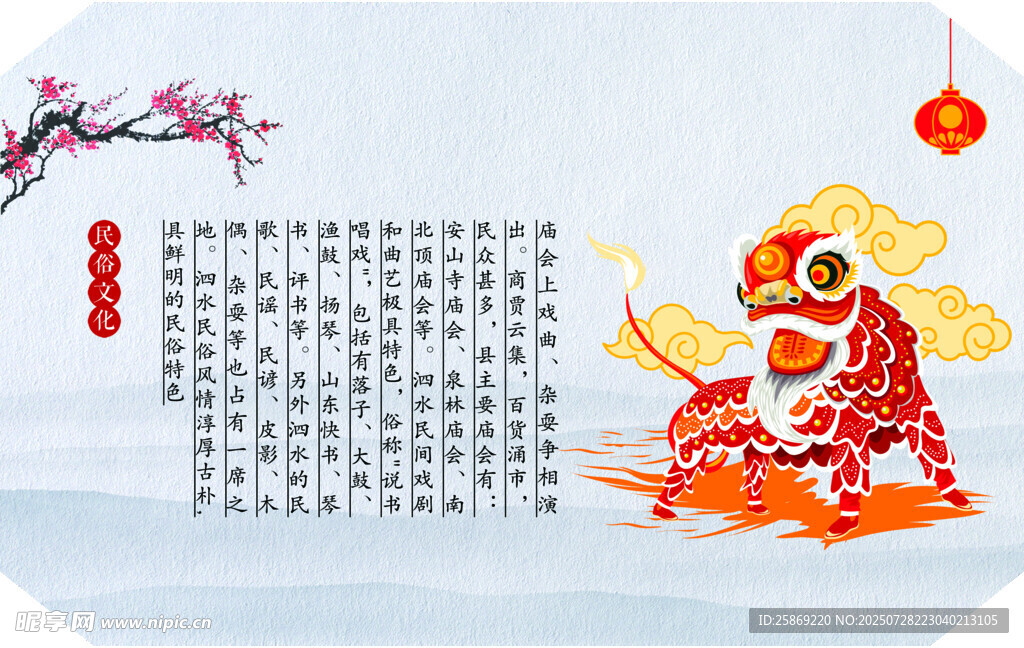 民俗文化
庙会上戏曲、杂耍争相演
出。商贾云集，百货涌市，
民众甚多，县主要庙会有：
安山寺庙会、泉林庙会、南
北顶庙会等。泗水民间戏剧
和曲艺极具特色，俗称"说书
唱戏"，包括有落子、大鼓、
渔鼓、扬琴、山东快书、琴
书、评书等。另外泗水的民
歌、民谣、民谚、皮影、木
偶、杂耍等也占有一席之
地。泗水民俗风情淳厚古朴，
具鲜明的民俗特色
昵享网 www.nipic.cn
ID:25869220 NO:20250728223040213105